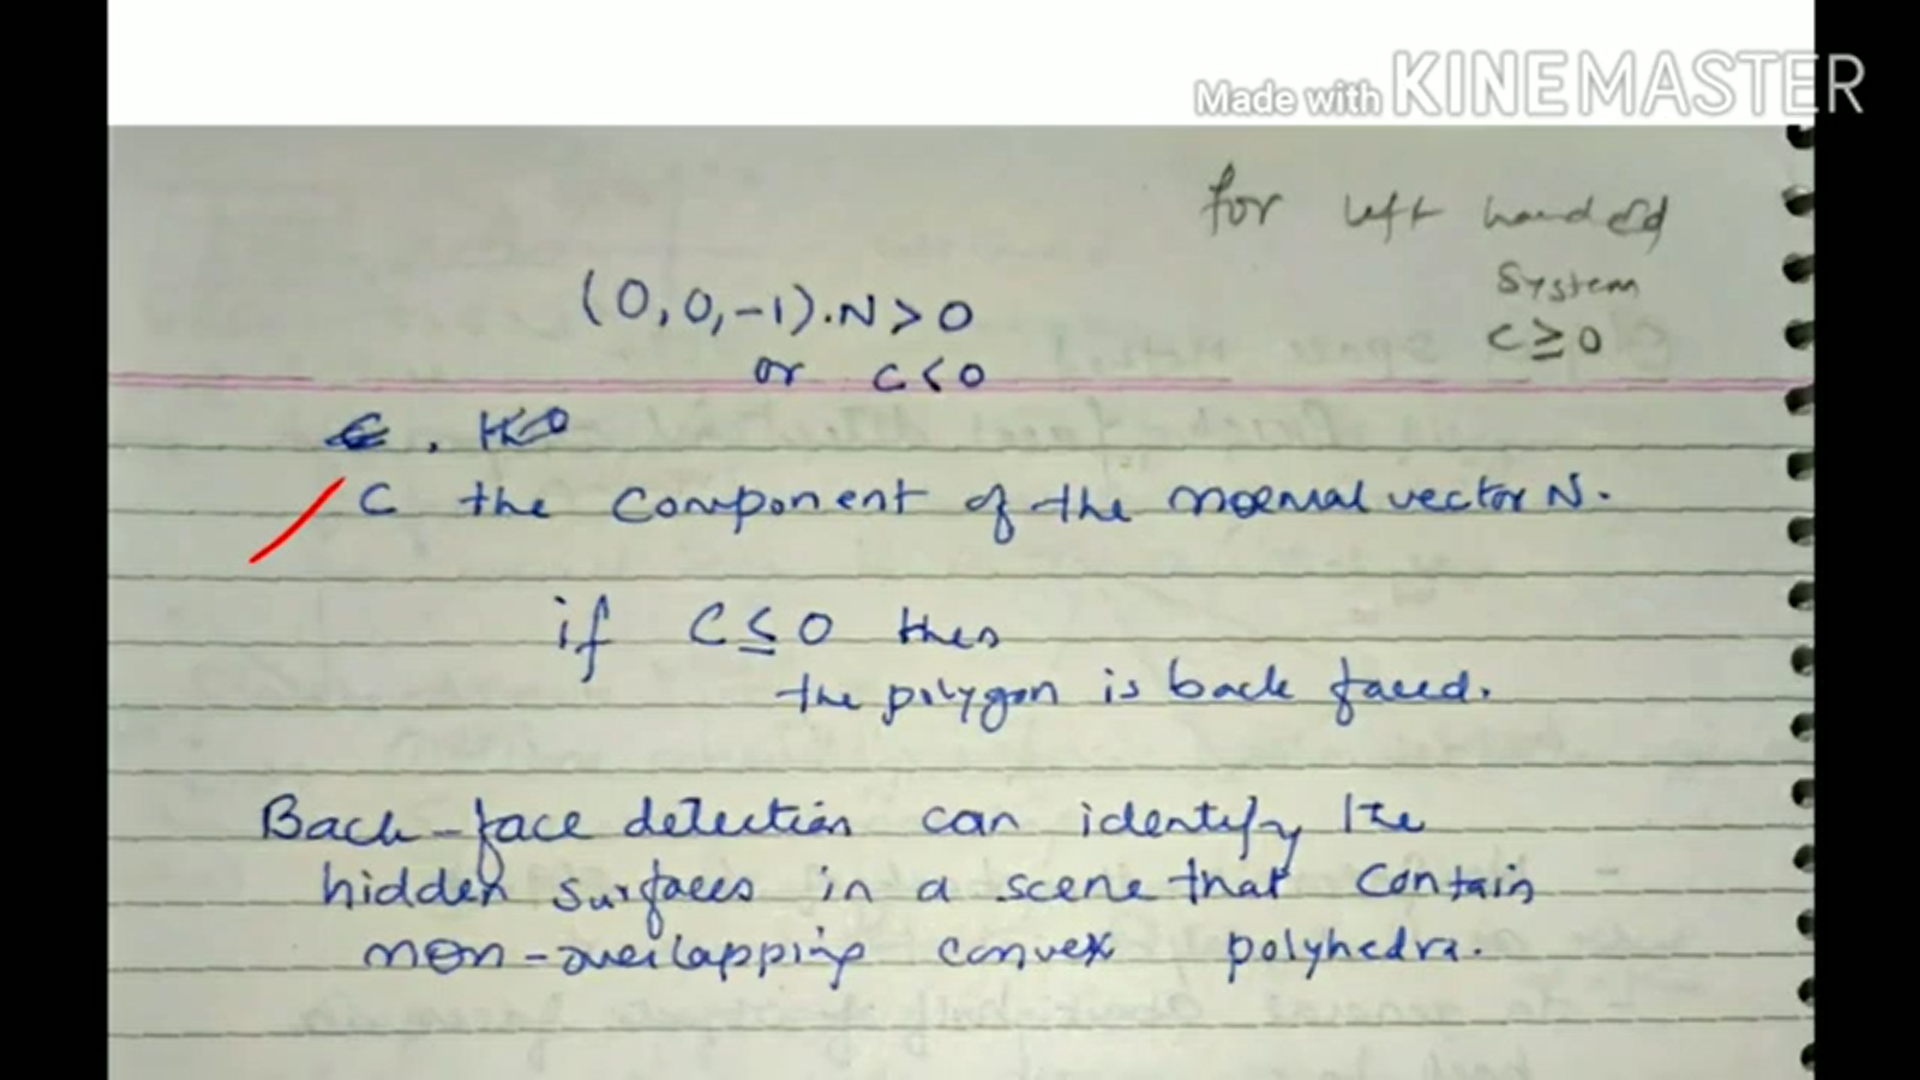 Made with KINEMASTER
for left handed
System
C ≥ 0
(0,0,-1).N > 0
or C < 0
C the component of the normal vector N.
if C ≤ 0 then
the polygon is back faced.
Back-face detection can identify the
hidden surfaces in a scene that contain
non-overlapping convex polyhedra.